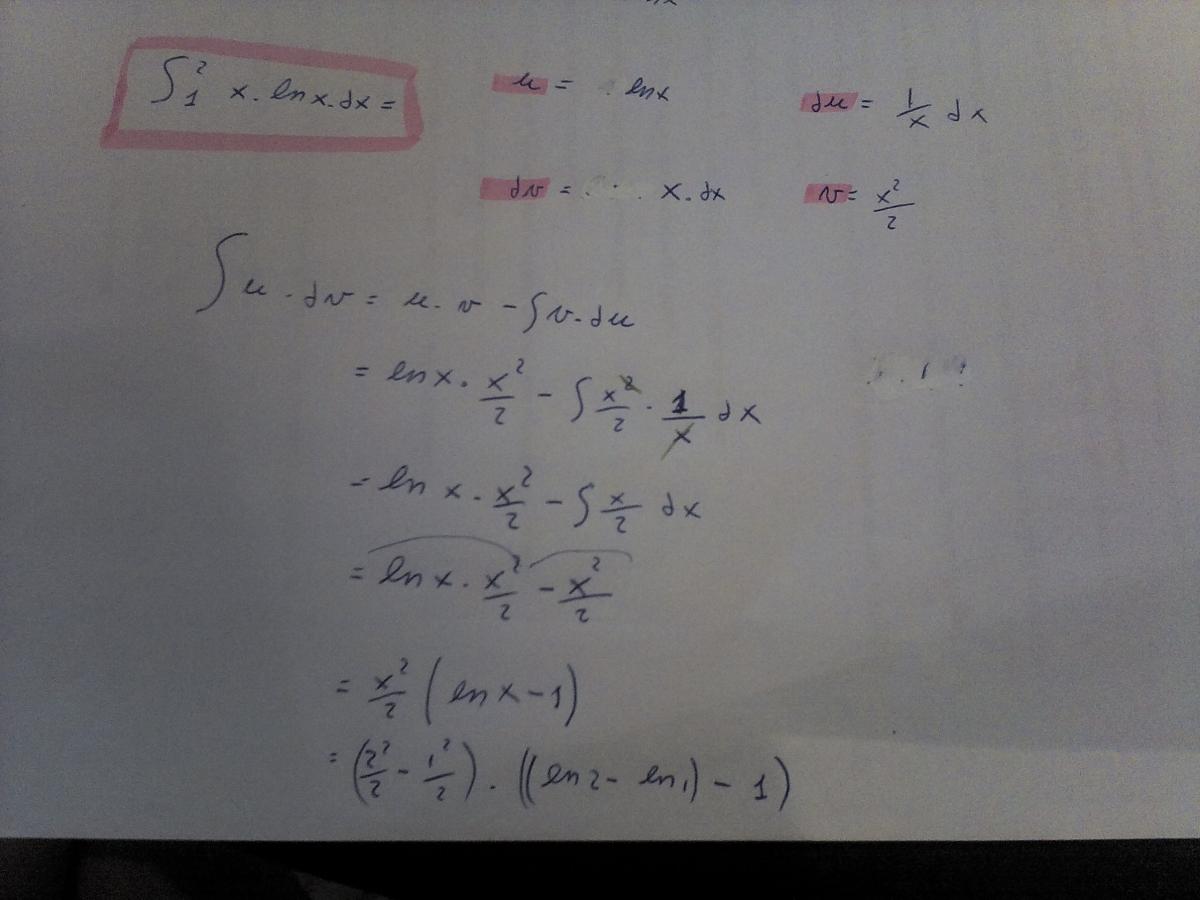 ∫₁² x. ln x. dx =
u = ln x
du = 1/x dx
dv = x. dx
v = x²/2
∫ u · dv = u. v - ∫ v. du
= ln x · x²/2 - ∫ x²/2 · 1/x dx
= ln x · x²/2 - ∫ x/2 dx
= ln x · x²/2 - x²/2
= x²/2 (ln x - 1)
= (2²/2 - 1²/2) · ((ln 2 - ln 1) - 1)